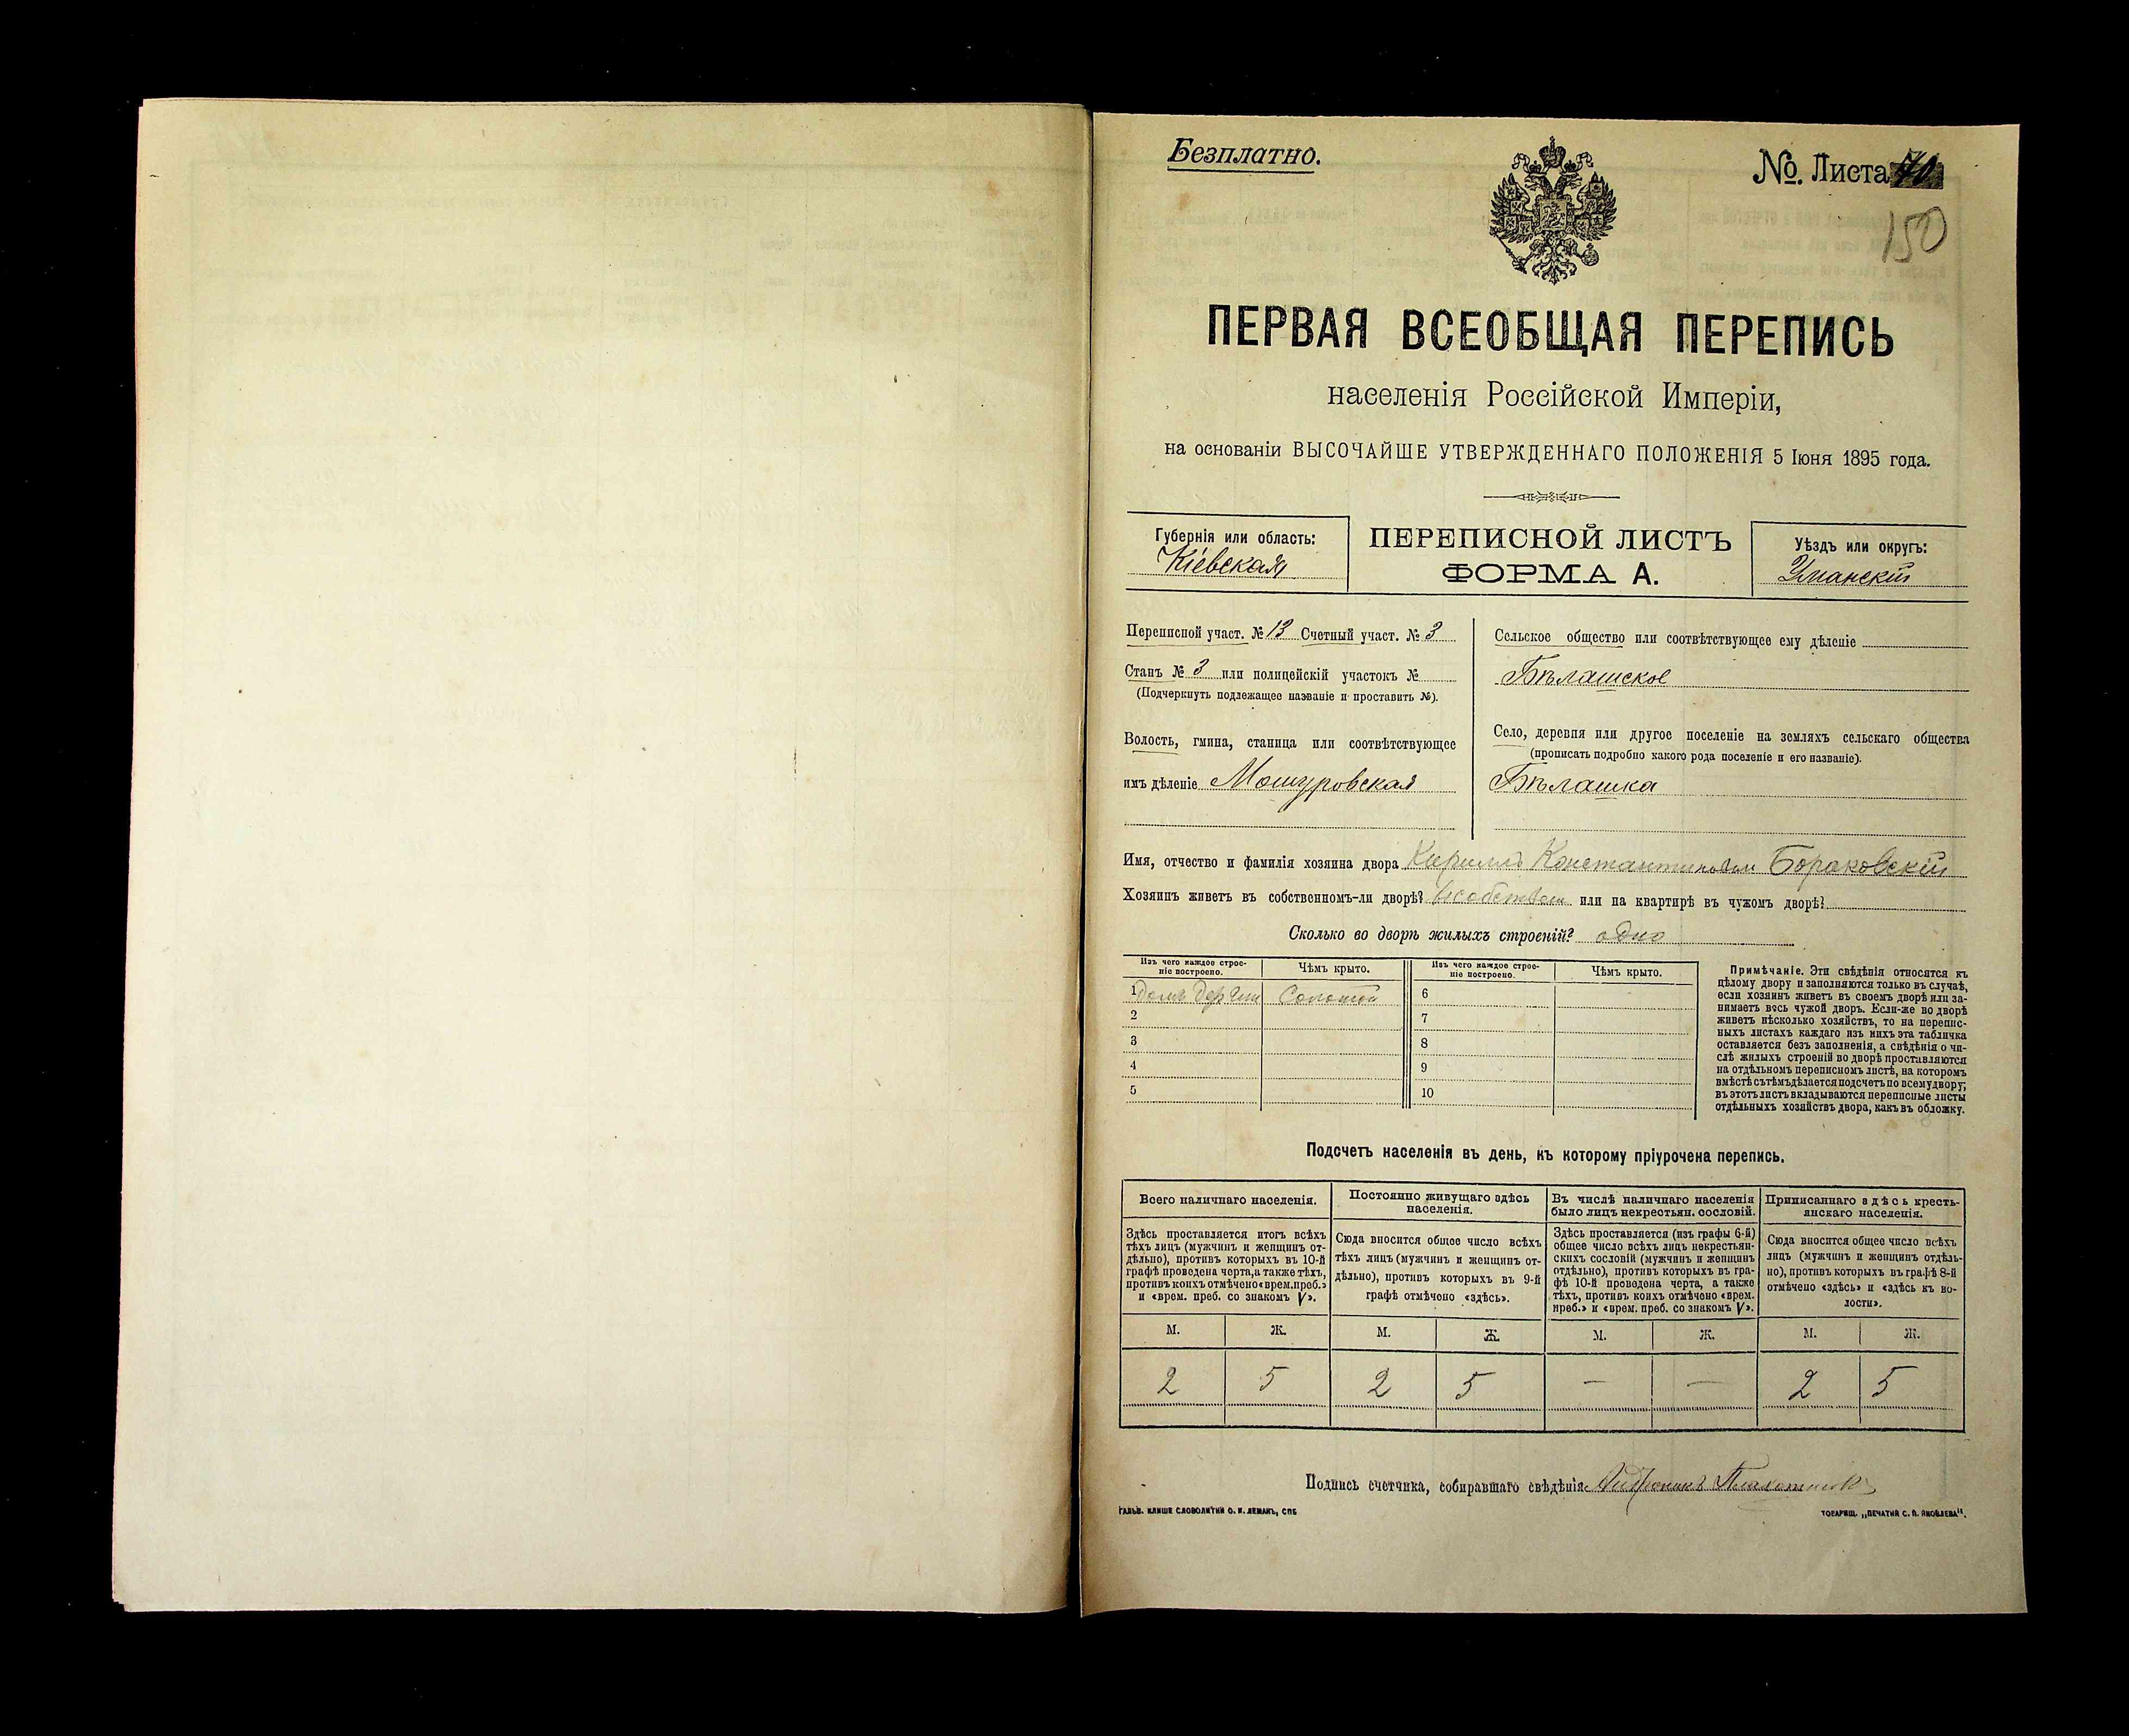 Безплатно.
№. Листа 40
150
ПЕРВАЯ ВСЕОБЩАЯ ПЕРЕПИСЬ
населенія Россійской Имперіи,
на основаніи ВЫСОЧАЙШЕ УТВЕРЖДЕННАГО ПОЛОЖЕНІЯ 5 Іюня 1895 года.
Губернія или область:
Кіевская
ПЕРЕПИСНОЙ ЛИСТЪ
ФОРМА А.
Уѣздъ или округъ:
Уманскій
Переписной участ. № 13 Счетный участ. № 3
Станъ № 3 или полицейскій участокъ №
(Подчеркнуть подлежащее названіе и проставить №).
Волость, гмина, станица или соотвѣтствующее
имъ дѣленіе Мошуровская
Сельское общество или соотвѣтствующее ему дѣленіе
Бѣлашское
Село, деревня или другое поселеніе на земляхъ сельскаго общества
(прописать подробно какого рода поселеніе и его названіе).
Бѣлашка
Имя, отчество и фамилія хозяина двора Кириллъ Константиновъ Бораковскій
Хозяинъ живетъ въ собственномъ-ли дворѣ? или на квартирѣ въ чужомъ дворѣ?
Сколько во дворѣ жилыхъ строеній? одно
Изъ чего каждое строе-
ніе построено.
Чѣмъ крыто.
Изъ чего каждое строе-
ніе построено.
Чѣмъ крыто.
1 Домъ Соломой
2
3
4
5
6
7
8
9
10
Примѣчаніе. Эти свѣдѣнія относятся къ
цѣлому двору и заполняются только въ случаѣ,
если хозяинъ живетъ въ своемъ дворѣ или за-
нимаетъ весь чужой дворъ. Если-же во дворѣ
живетъ нѣсколько хозяйствъ, то на перепис-
ныхъ листахъ каждаго изъ нихъ эта табличка
оставляется безъ заполненія, а свѣдѣнія о чи-
слѣ жилыхъ строеній во дворѣ проставляются
на отдѣльномъ переписномъ листѣ, на которомъ
вмѣстѣ съ тѣмъ дѣлается подсчетъ по всему двору;
въ этотъ листъ вкладываются переписные листы
отдѣльныхъ хозяйствъ двора, какъ въ обложку.
Подсчетъ населенія въ день, къ которому пріурочена перепись.
Всего наличнаго населенія.
Здѣсь проставляется итогъ всѣхъ
тѣхъ лицъ (мужчинъ и женщинъ от-
дѣльно), противъ которыхъ въ 10-й
графѣ проведена черта, а также тѣхъ,
противъ коихъ отмѣчено «врем. преб.»
и «врем. преб. со знакомъ V».
Постоянно живущаго здѣсь
населенія.
Сюда вносится общее число всѣхъ
тѣхъ лицъ (мужчинъ и женщинъ от-
дѣльно), противъ которыхъ въ 9-й
графѣ отмѣчено «здѣсь».
Въ числѣ наличнаго населенія
было лицъ некрестьян. сословій.
Здѣсь проставляется (изъ графы 6-й)
общее число всѣхъ лицъ некрестьян-
скихъ сословій (мужчинъ и женщинъ
отдѣльно), противъ которыхъ въ гра-
фѣ 10-й проведена черта, а также
тѣхъ, противъ коихъ отмѣчено «врем.
преб.» и «врем. преб. со знакомъ V».
Приписаннаго здѣсь кресть-
янскаго населенія.
Сюда вносится общее число всѣхъ
лицъ (мужчинъ и женщинъ отдѣль-
но), противъ которыхъ въ графѣ 8-й
отмѣчено «здѣсь» и «здѣсь къ во-
лости».
М. Ж. М. Ж. М. Ж. М. Ж.
2 5 2 5 — — 2 5
Подпись счетчика, собиравшаго свѣдѣнія
ГАЛЬВ. КЛИШЕ СЛОВОЛИТНИ О. И. ЛЕМАНЪ, СПБ
ТОВАРИЩ. „ПЕЧАТНЯ С. П. ЯКОВЛЕВА".